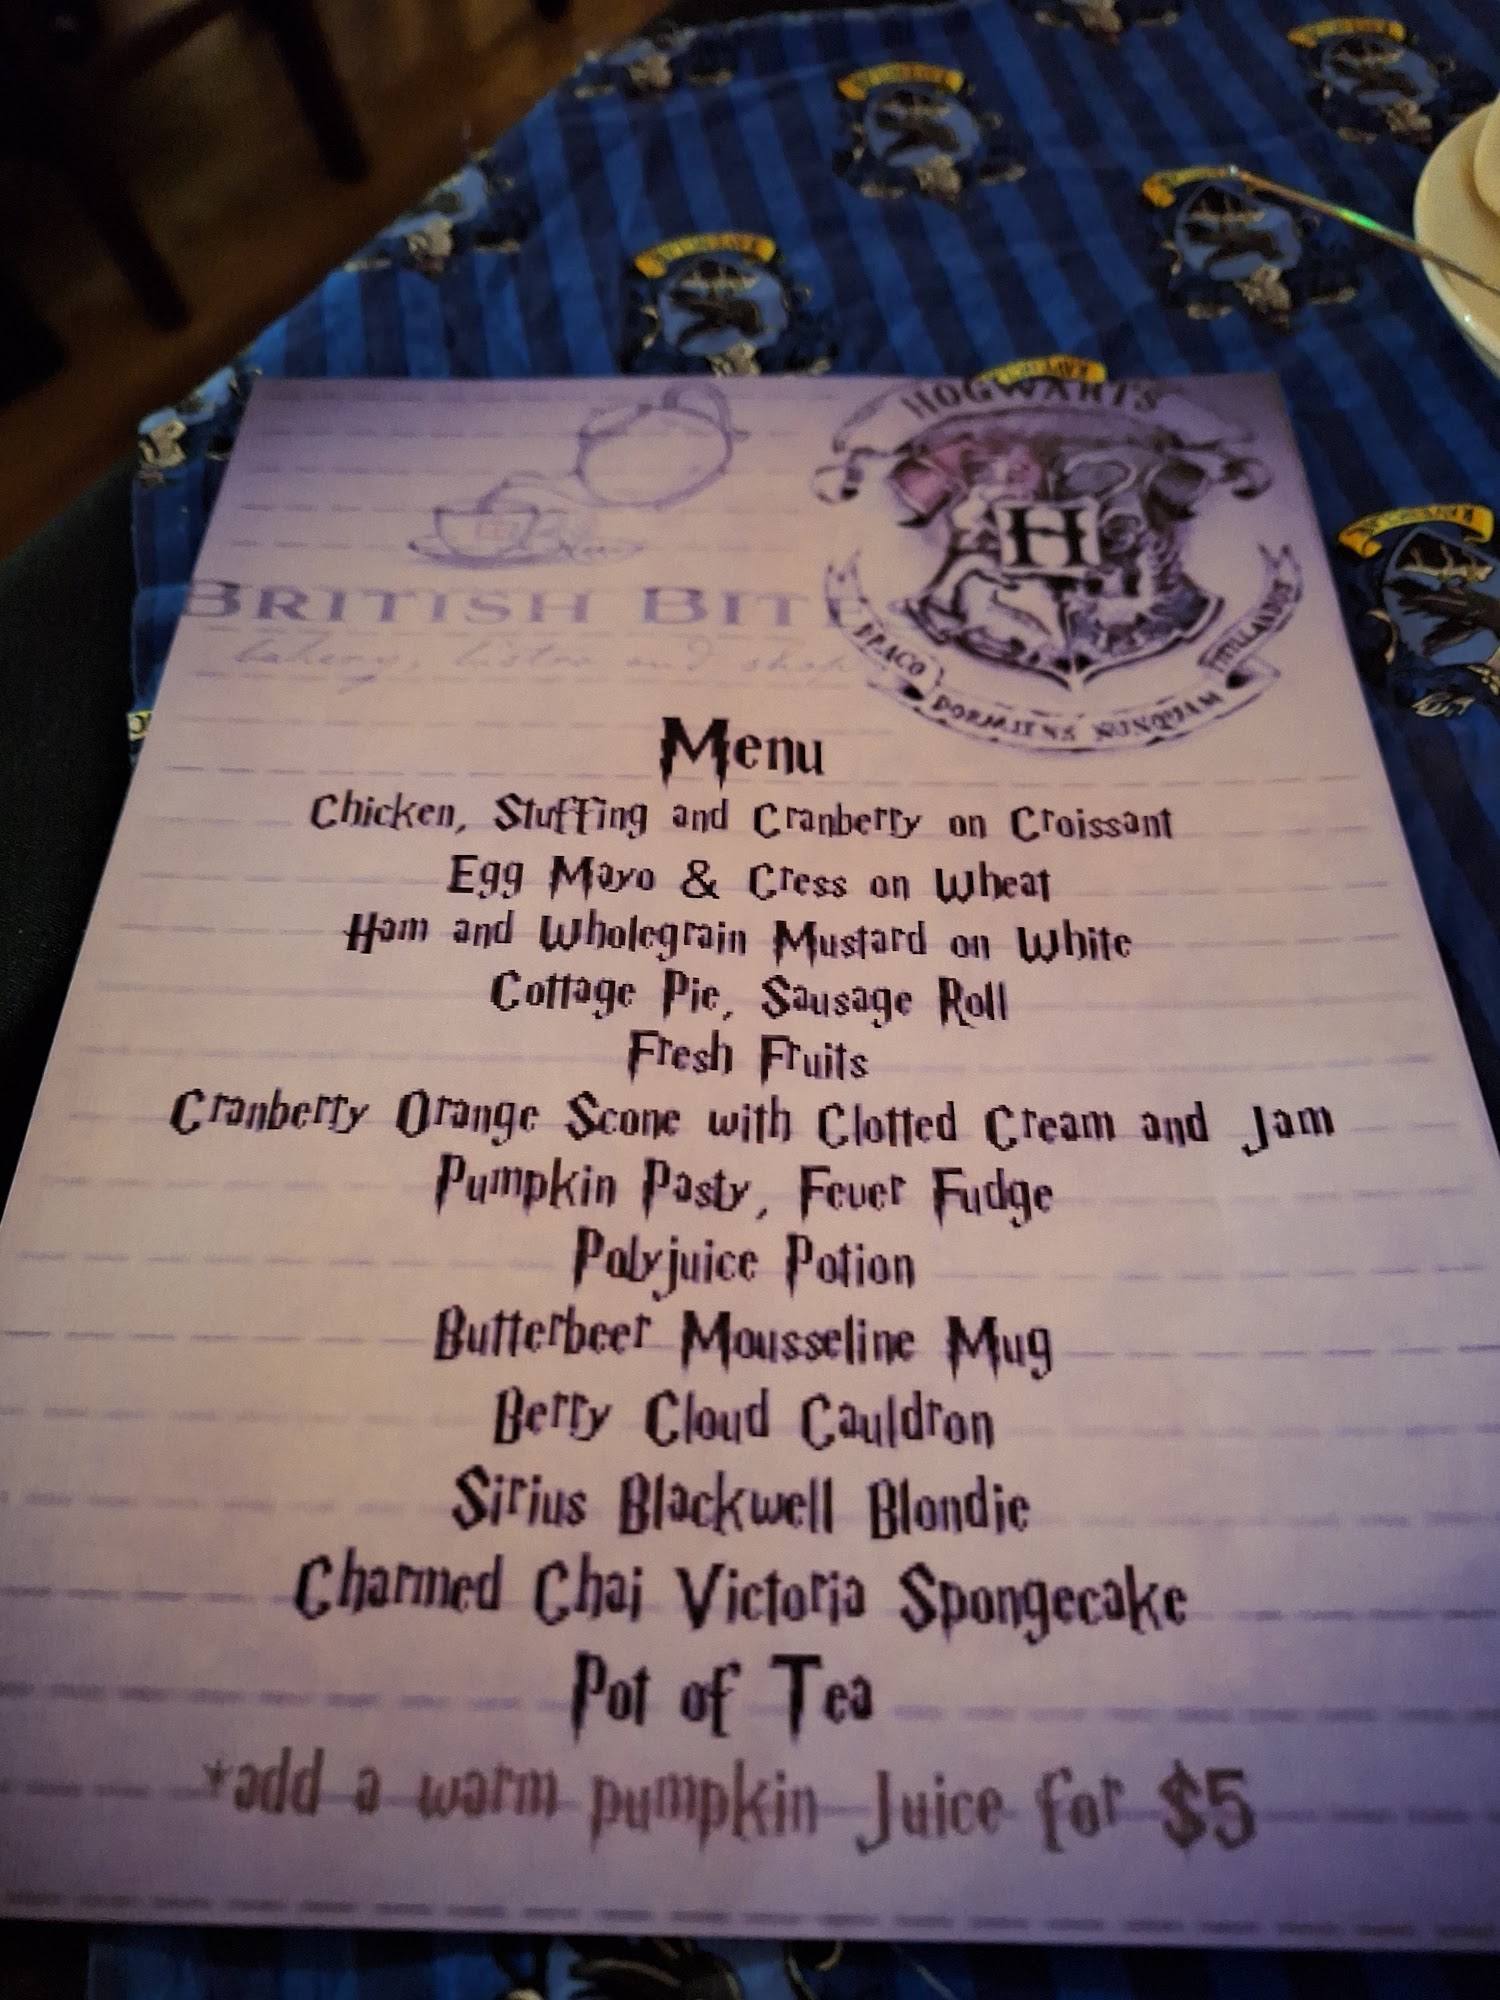 HOGWARTS
H
BRITISH BITES
bakery, bistro and shop
DRACO DORMIENS NUNQUAM TITILLANDUS
Menu
Chicken, Stuffing and Cranberry on Croissant
Egg Mayo & Cress on Wheat
Ham and Wholegrain Mustard on White
Cottage Pie, Sausage Roll
Fresh Fruits
Cranberry Orange Scone with Clotted Cream and Jam
Pumpkin Pasty, Fever Fudge
Polyjuice Potion
Butterbeer Mousseline Mug
Berry Cloud Cauldron
Sirius Blackwell Blondie
Charmed Chai Victoria Spongecake
Pot of Tea
*add a warm pumpkin Juice for $5